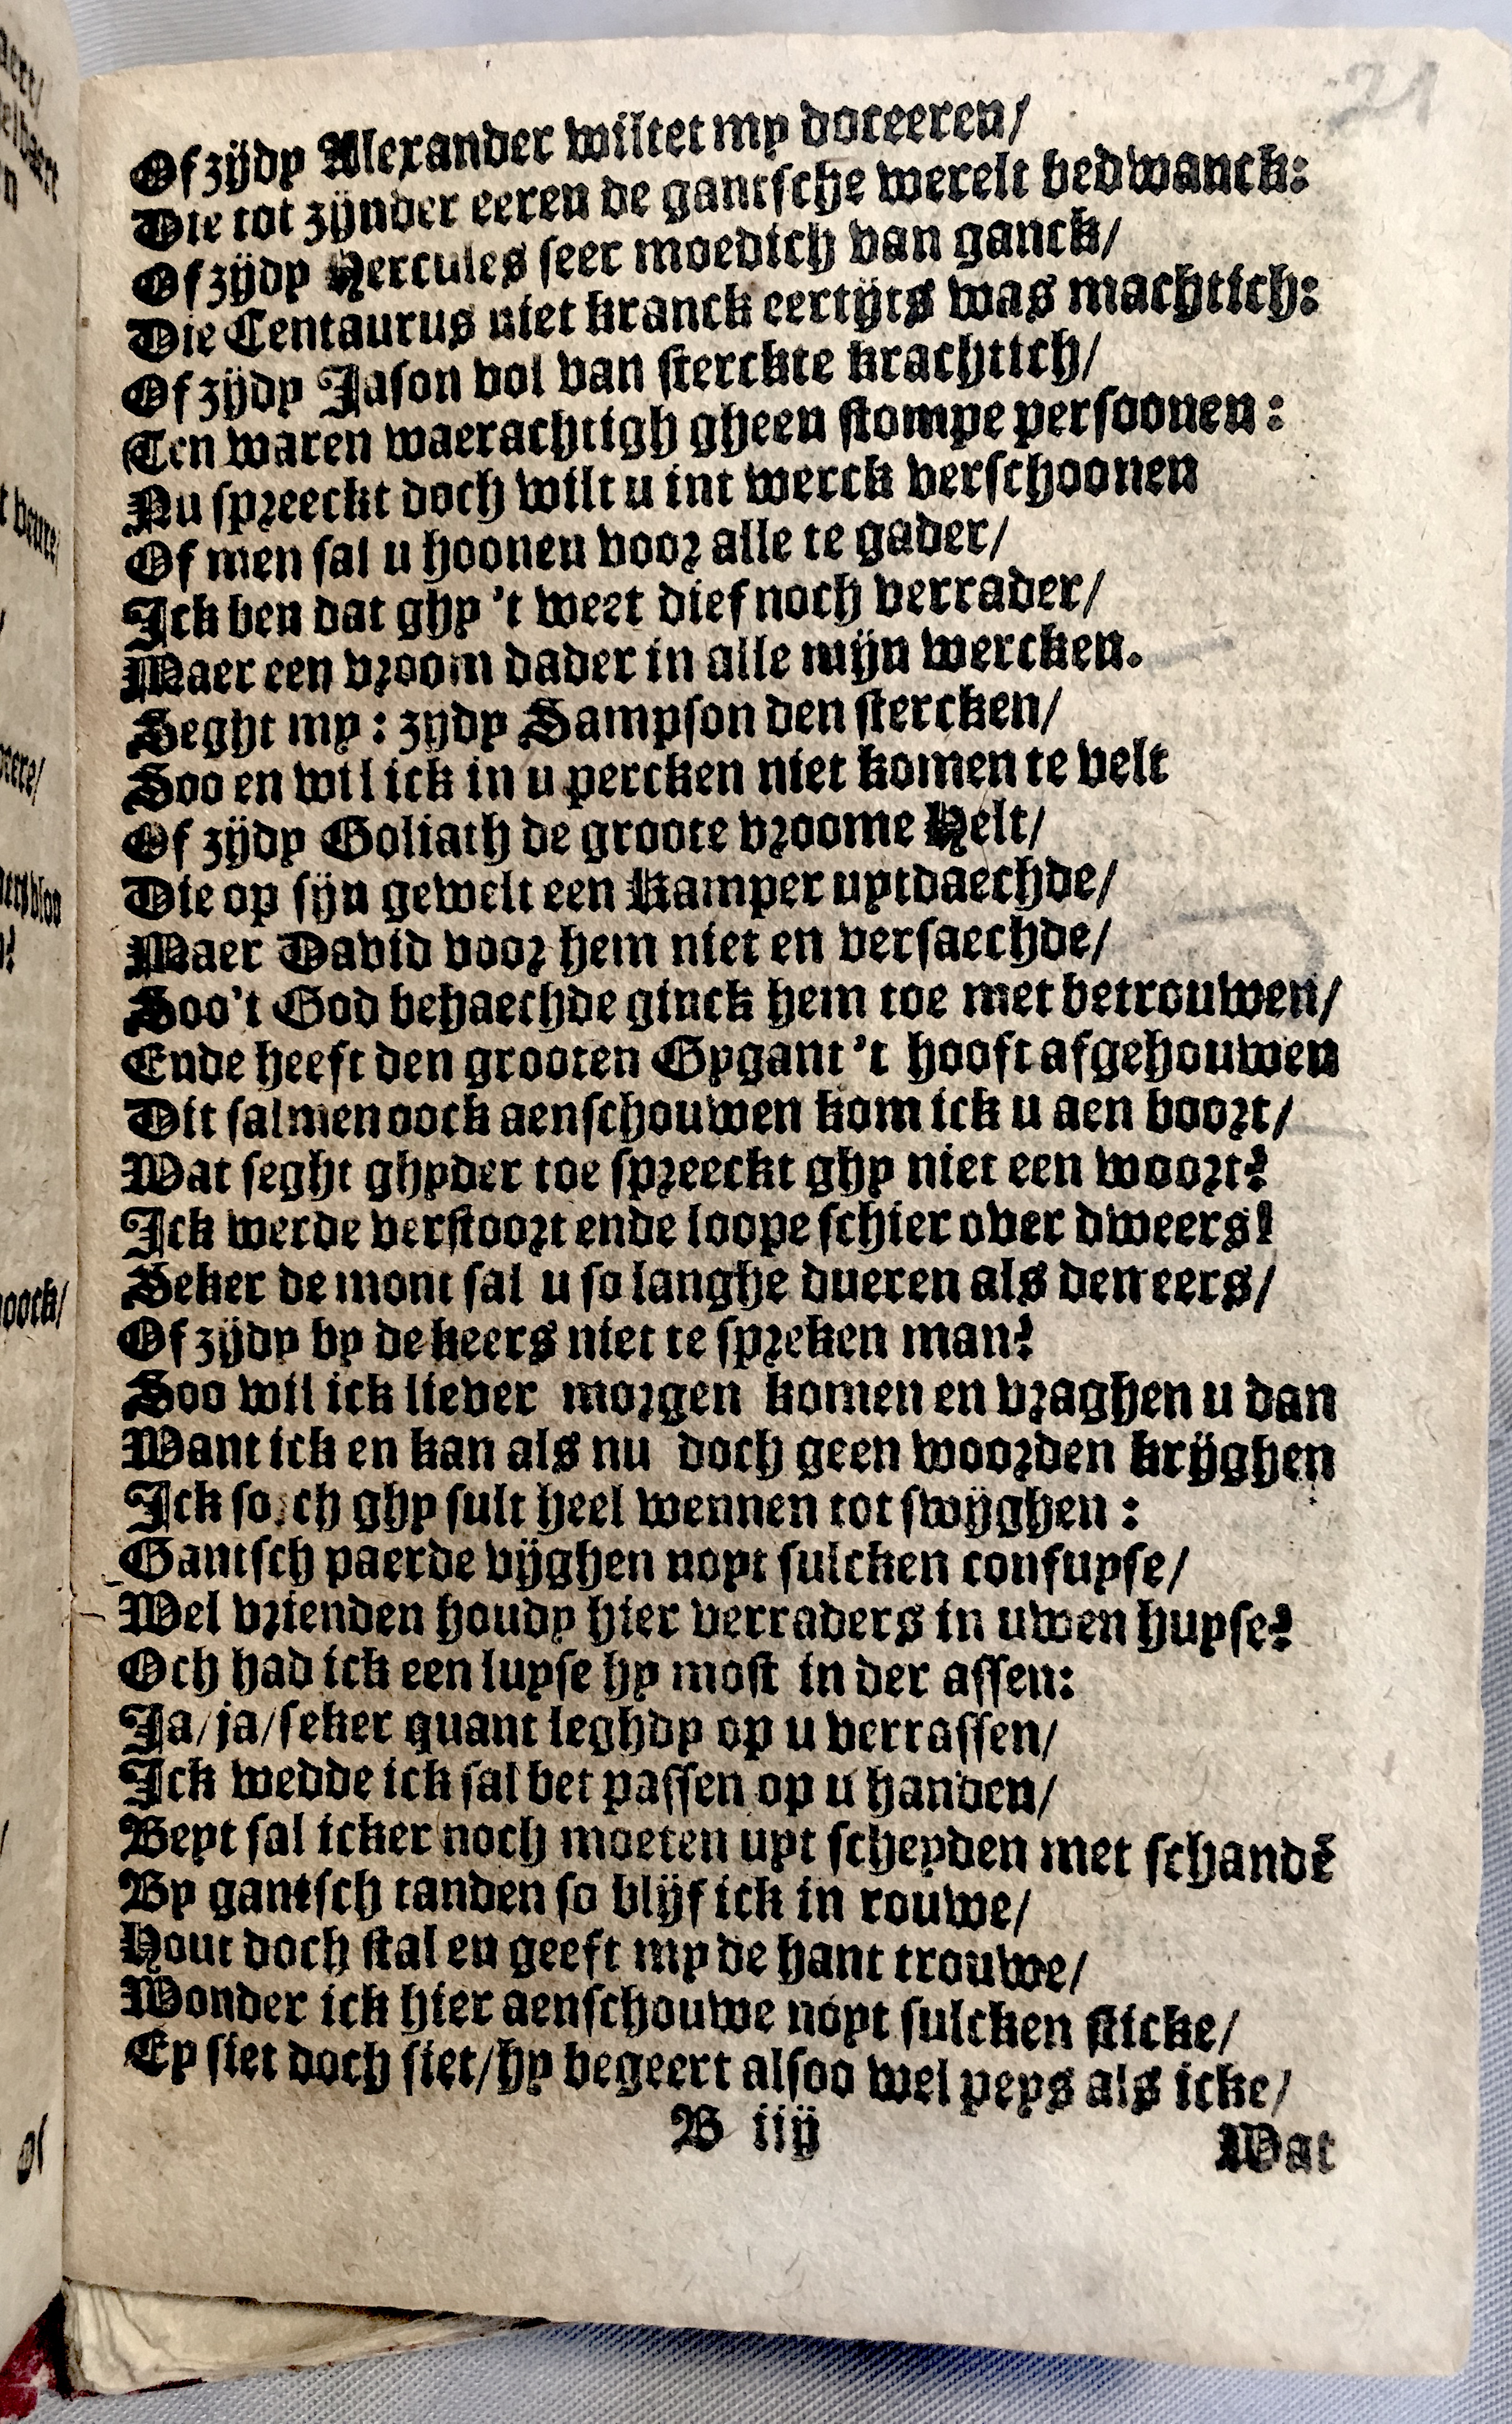 21
Of zijdy Alexander wiltet my doceeren/
Die tot zijnder eeren de gantsche werelt bedwanck:
Of zijdy Hercules seer moedich van ganck/
Die Centaurus niet kranck eertijts was machtich:
Of zijdy Jason vol van sterckte krachtich/
(Ten waren waerachtigh gheen stompe persoonen:
Nu spreeckt doch wilt u int werck verschoonen
Of men sal u hoonen voor alle te gader/
Ick ben dat ghy 't weet dief noch verrader/
Maer een vroom dader in alle mijn wercken.
Seght my: zydy Sampson den stercken/
Soo en wil ick in u percken niet komen te velt
Of zijdy Goliath de groote vroome Helt/
Die op sijn gewelt een Kamper uytdaechde/
Maer David voor hem niet en versaechde/
Soo't God behaechde ginck hem toe met betrouwen/
Ende heeft den grooten Gygant 't hooft afgehouwen
Dit salmen oock aenschouwen kom ick u aen boort/
Wat seght ghyder toe spreeckt ghy niet een woort?
Ick werde verstoort ende loope schier over dweers!
Seker de mont sal u so langhe dueren als den eers/
Of zijdy by de keers niet te spreken man?
Soo wil ick liever morgen komen en vraghen u dan
Want ick en kan als nu doch geen woorden krijghen
Ick so.ch ghy sult heel wennen tot swijghen:
Gantsch paerde vijghen noyt sulcken confuyse/
Wel vrienden houdy hier verraders in uwen huyse?
Och had ick een luyse hy most in der assen:
Ja/ja/seker quant leghdy op u verrassen/
Ick wedde ick sal bet passen op u handen/
Beyt sal icker noch moeten uyt scheyden met schandē
By gantsch tanden so blijf ick in rouwe/
Hout doch stal en geeft my de hant trouwe/
Wonder ick hier aenschouwe noyt sulcken sticke/
Ey siet doch siet/hy begeert alsoo wel peys als icke/
B iij
Wat